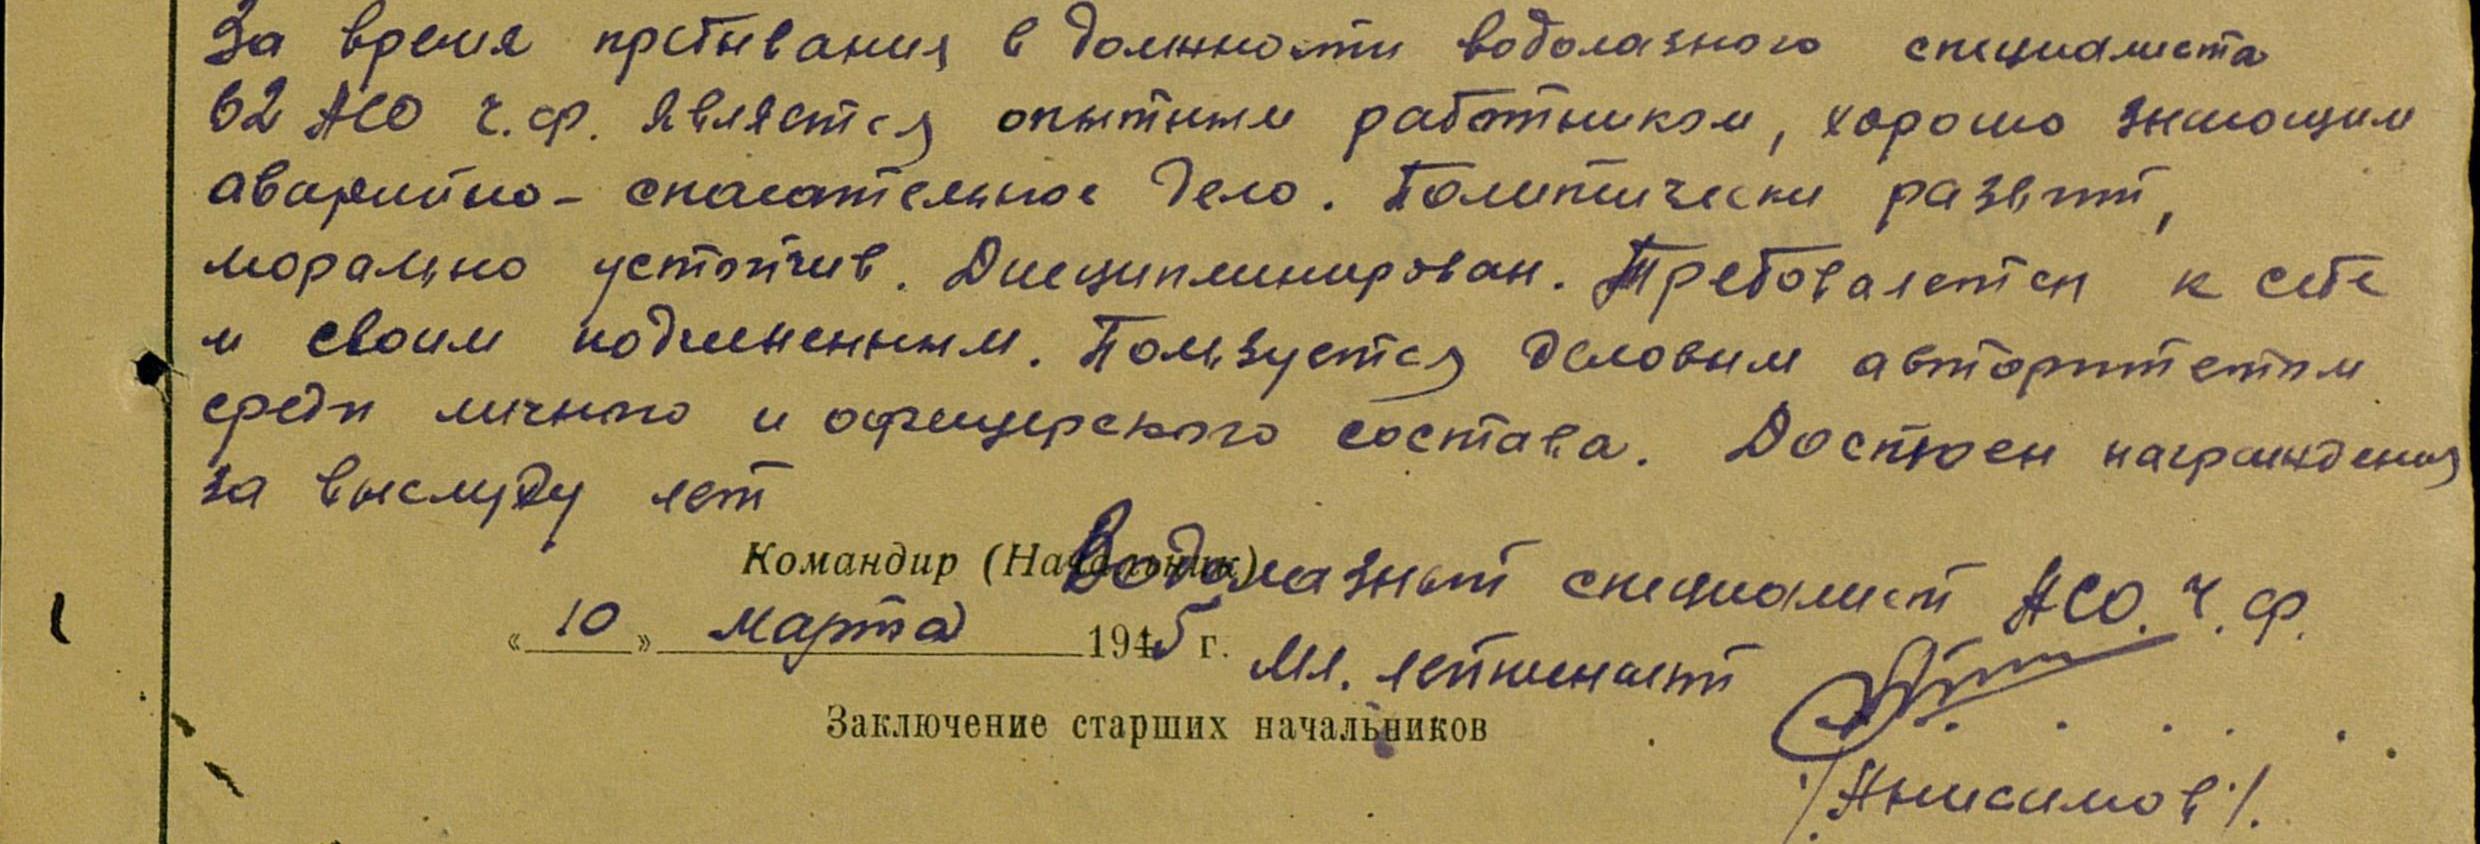 За время пребывания в должности водолазного специалиста
62 АСО ч.ф. является опытным работником, хорошо знающим
аварийно-спасательное дело. Политически развит,
морально устойчив. Дисциплинирован. Требователен к себе
и своим подчиненным. Пользуется деловым авторитетом
среди личного и офицерского состава. Достоен награждения
за выслугу лет
Командир (Начальник) Водолазный специалист АСО. ч. ф.
«10» марта 1945 г. Мл. лейтенант
Заключение старших начальников
/Анисимов/.